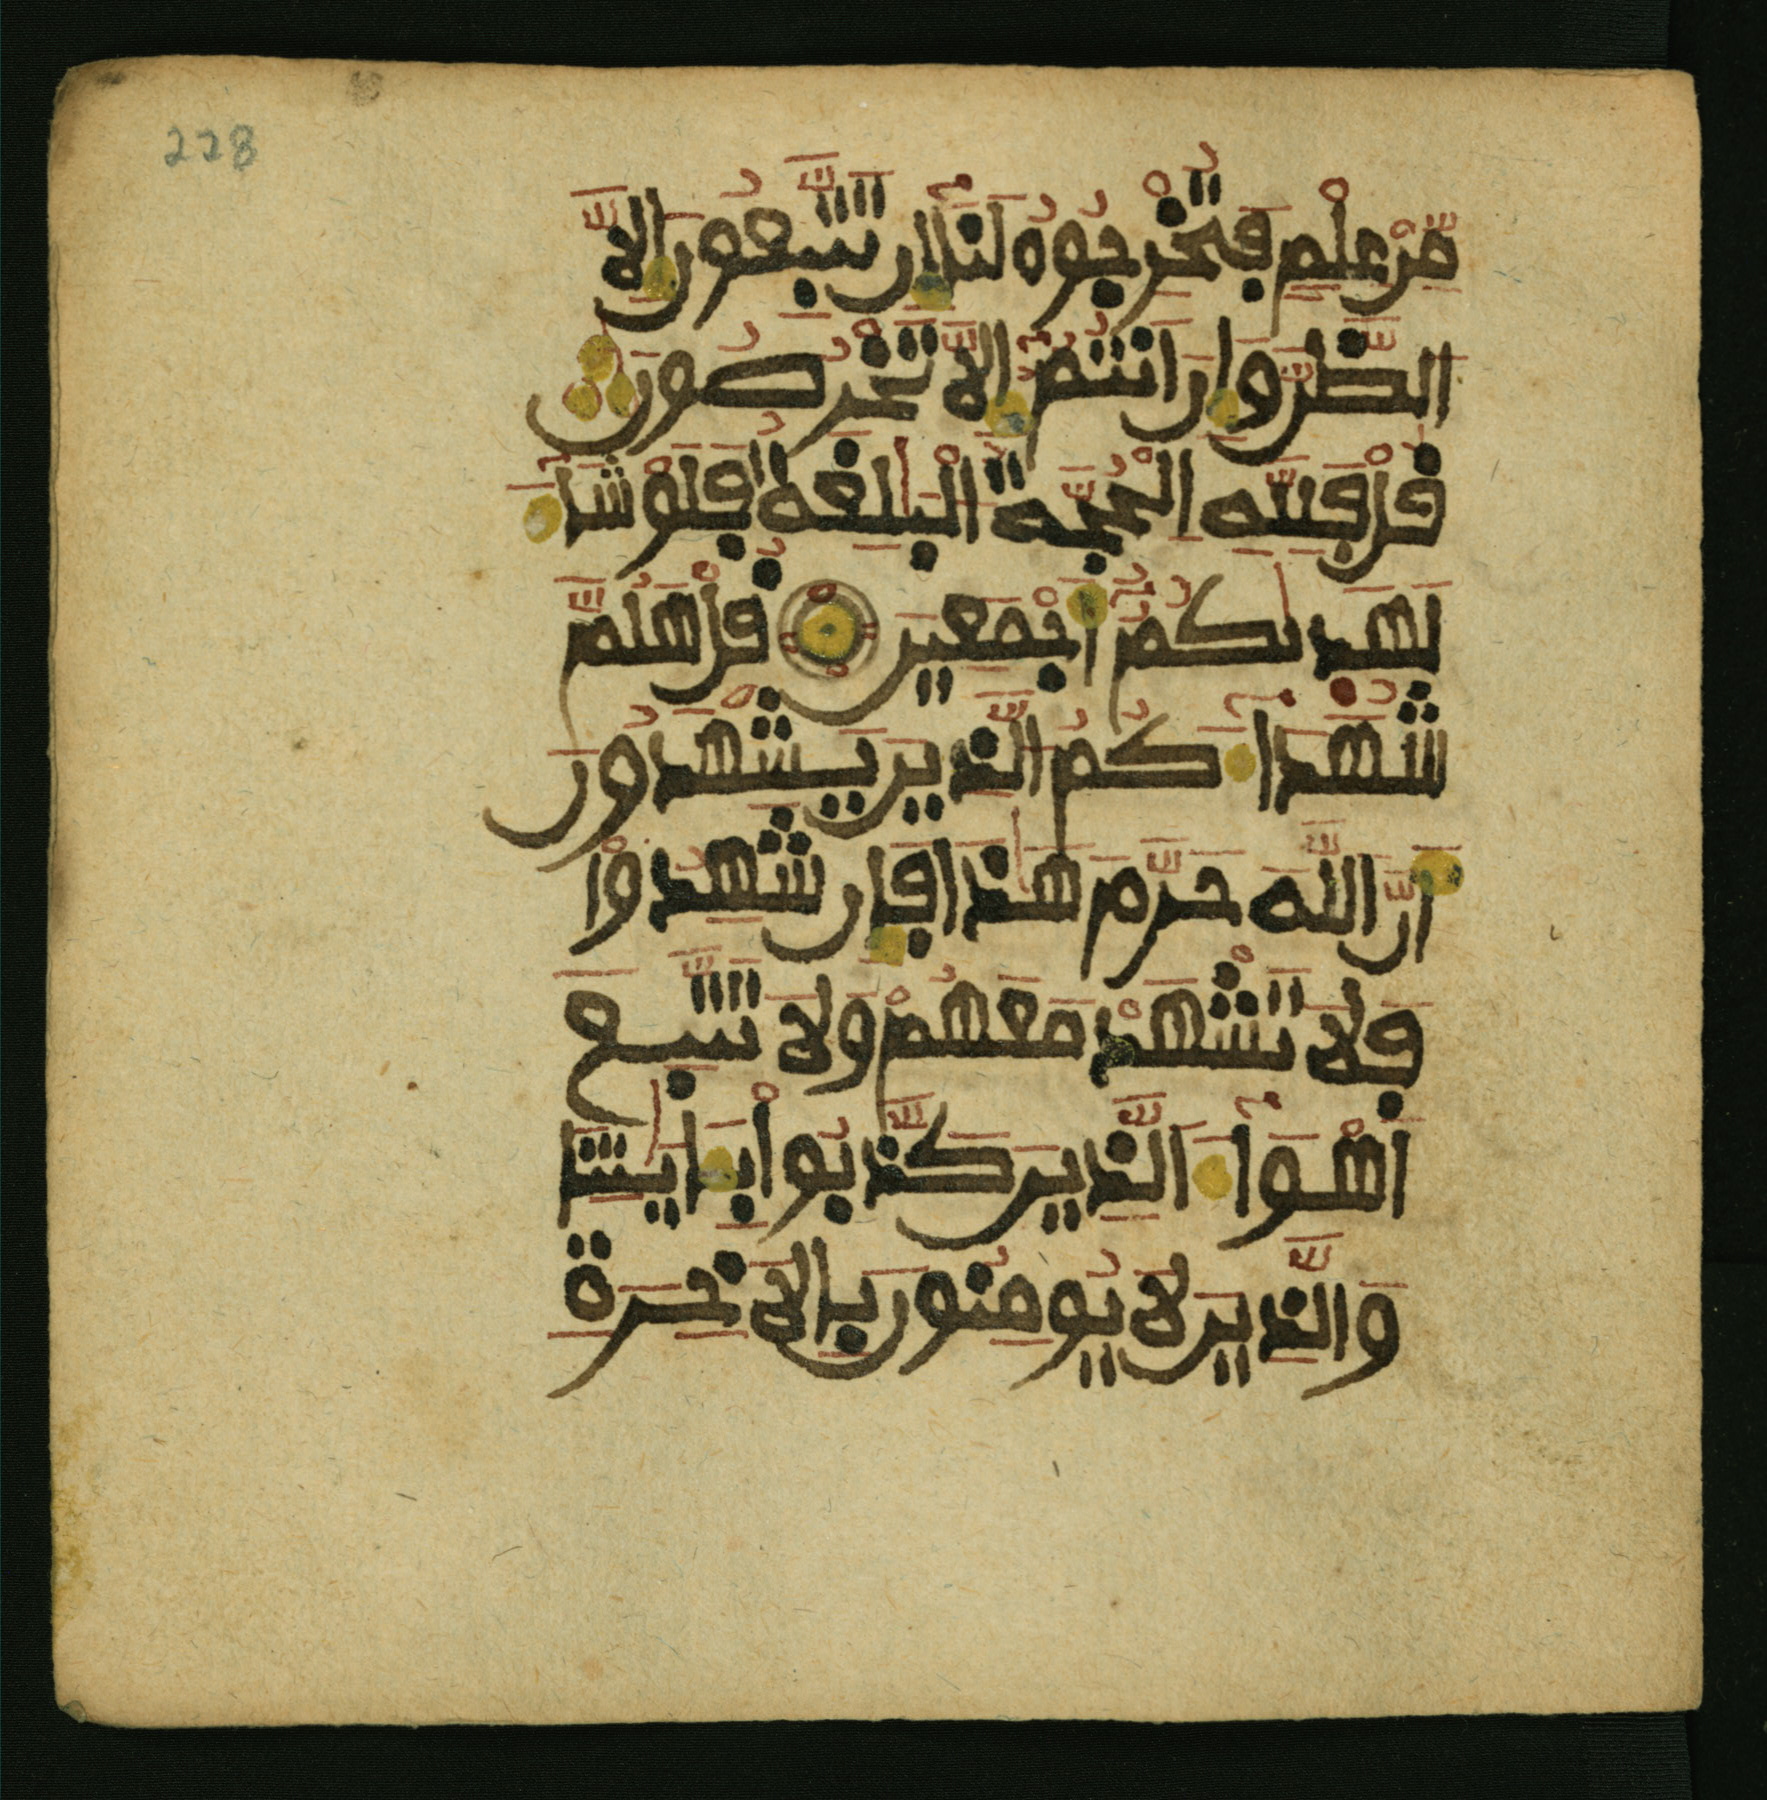 228
مِّنْ عِلْمٍ فَتُخْرِجُوهُ لَنَآ إِن تَتَّبِعُونَ إِلَّا
الظَّنَّ وَإِنْ أَنتُمُ إِلَّا تَخْرُصُونَ
قُلْ فَلِلَّهِ الْحُجَّةُ الْبَٰلِغَةُ فَلَوْ شَآءَ
لَهَدَىٰكُمُ أَجْمَعِينَ قُلْ هَلُمَّ
شُهَدَآءَكُمُ الَّذِينَ يَشْهَدُونَ
أَنَّ اللَّهَ حَرَّمَ هَٰذَا فَإِن شَهِدُوا
فَلَا تَشْهَدْ مَعَهُمْ وَلَا تَتَّبِعَ
أَهْوَآءَ الَّذِينَ كَذَّبُوا بِـَٔايَٰتِنَا
وَالَّذِينَ لَا يُومِنُونَ بِالَاخِرَةِ